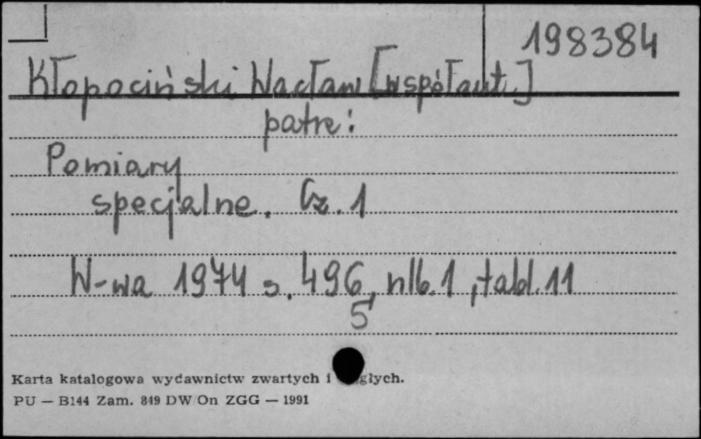 198384
Kłopociński Wacław [współaut.]
patrz:
Pomiary
specjalne. Cz. 1
W-wa 1974 s. 496, nlb. 1, tabl. 11
5
Karta katalogowa wydawnictw zwartych i głych.
PU — B144 Zam. 849 DW/On ZGG — 1991